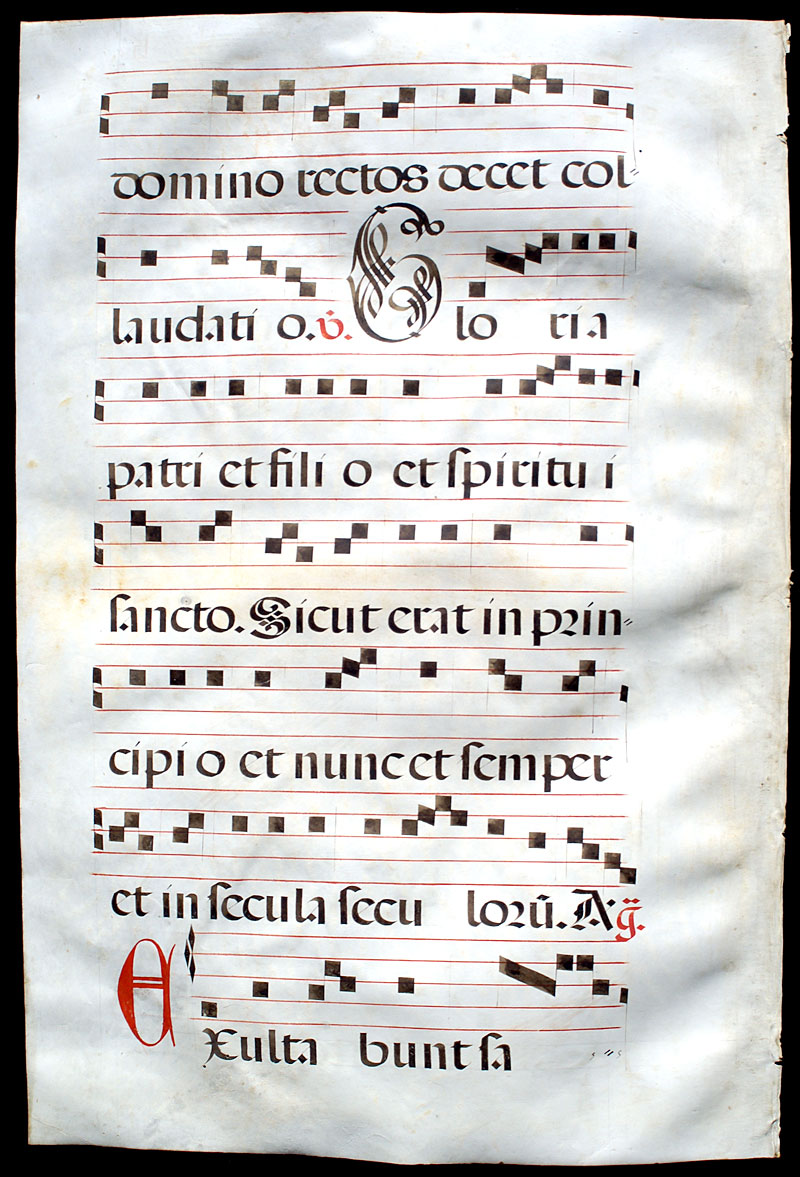 domino rectos decet col⸗
laudati o. v̇. Glo ria
patri et fili o et ſpiritu ſ
ſancto. Sicut erat in prin⸗
cipi o et nunc et ſemper
et in ſecula ſecu lorū. A. g̃.
EXulta bunt ſa